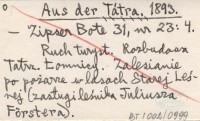 Aus der Tatra, 1893.
— Zipser Bote 31, nr 23: 4.
Ruch turyst. Rozbudowa
Tatrz. Łomnicy. Zalesianie
po pożarze w lasach Starej Leś-
nej (zasługi leśnika Juliusza
Förstera).